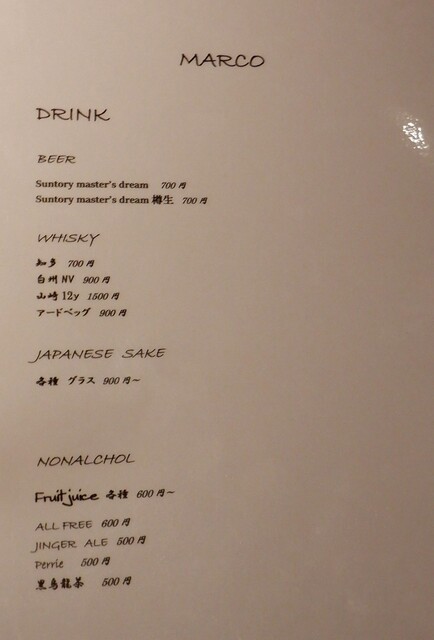 MARCO
DRINK
BEER
Suntory master's dream 700円
Suntory master's dream 樽生 700円
WHISKY
知多 700円
白州 NV 900円
山崎 12y 1500円
アードベッグ 900円
JAPANESE SAKE
各種 グラス 900円～
NONALCHOL
Fruit juice 各種 600円～
ALL FREE 600円
JINGER ALE 500円
Perrie 500円
黒烏龍茶 500円